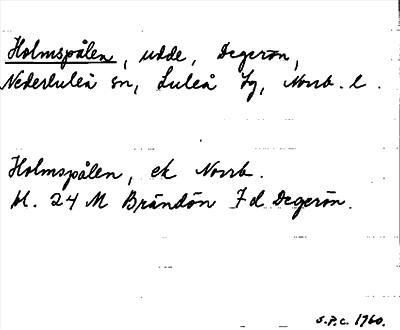 Holmspålen, udde, Degerön,
Nederluleå sn, Luleå tg, Norrb. l.
Holmspålen, ek Norrb.
bl. 24 M Brändön 7 d Degerön.
S.P.C. 1760.